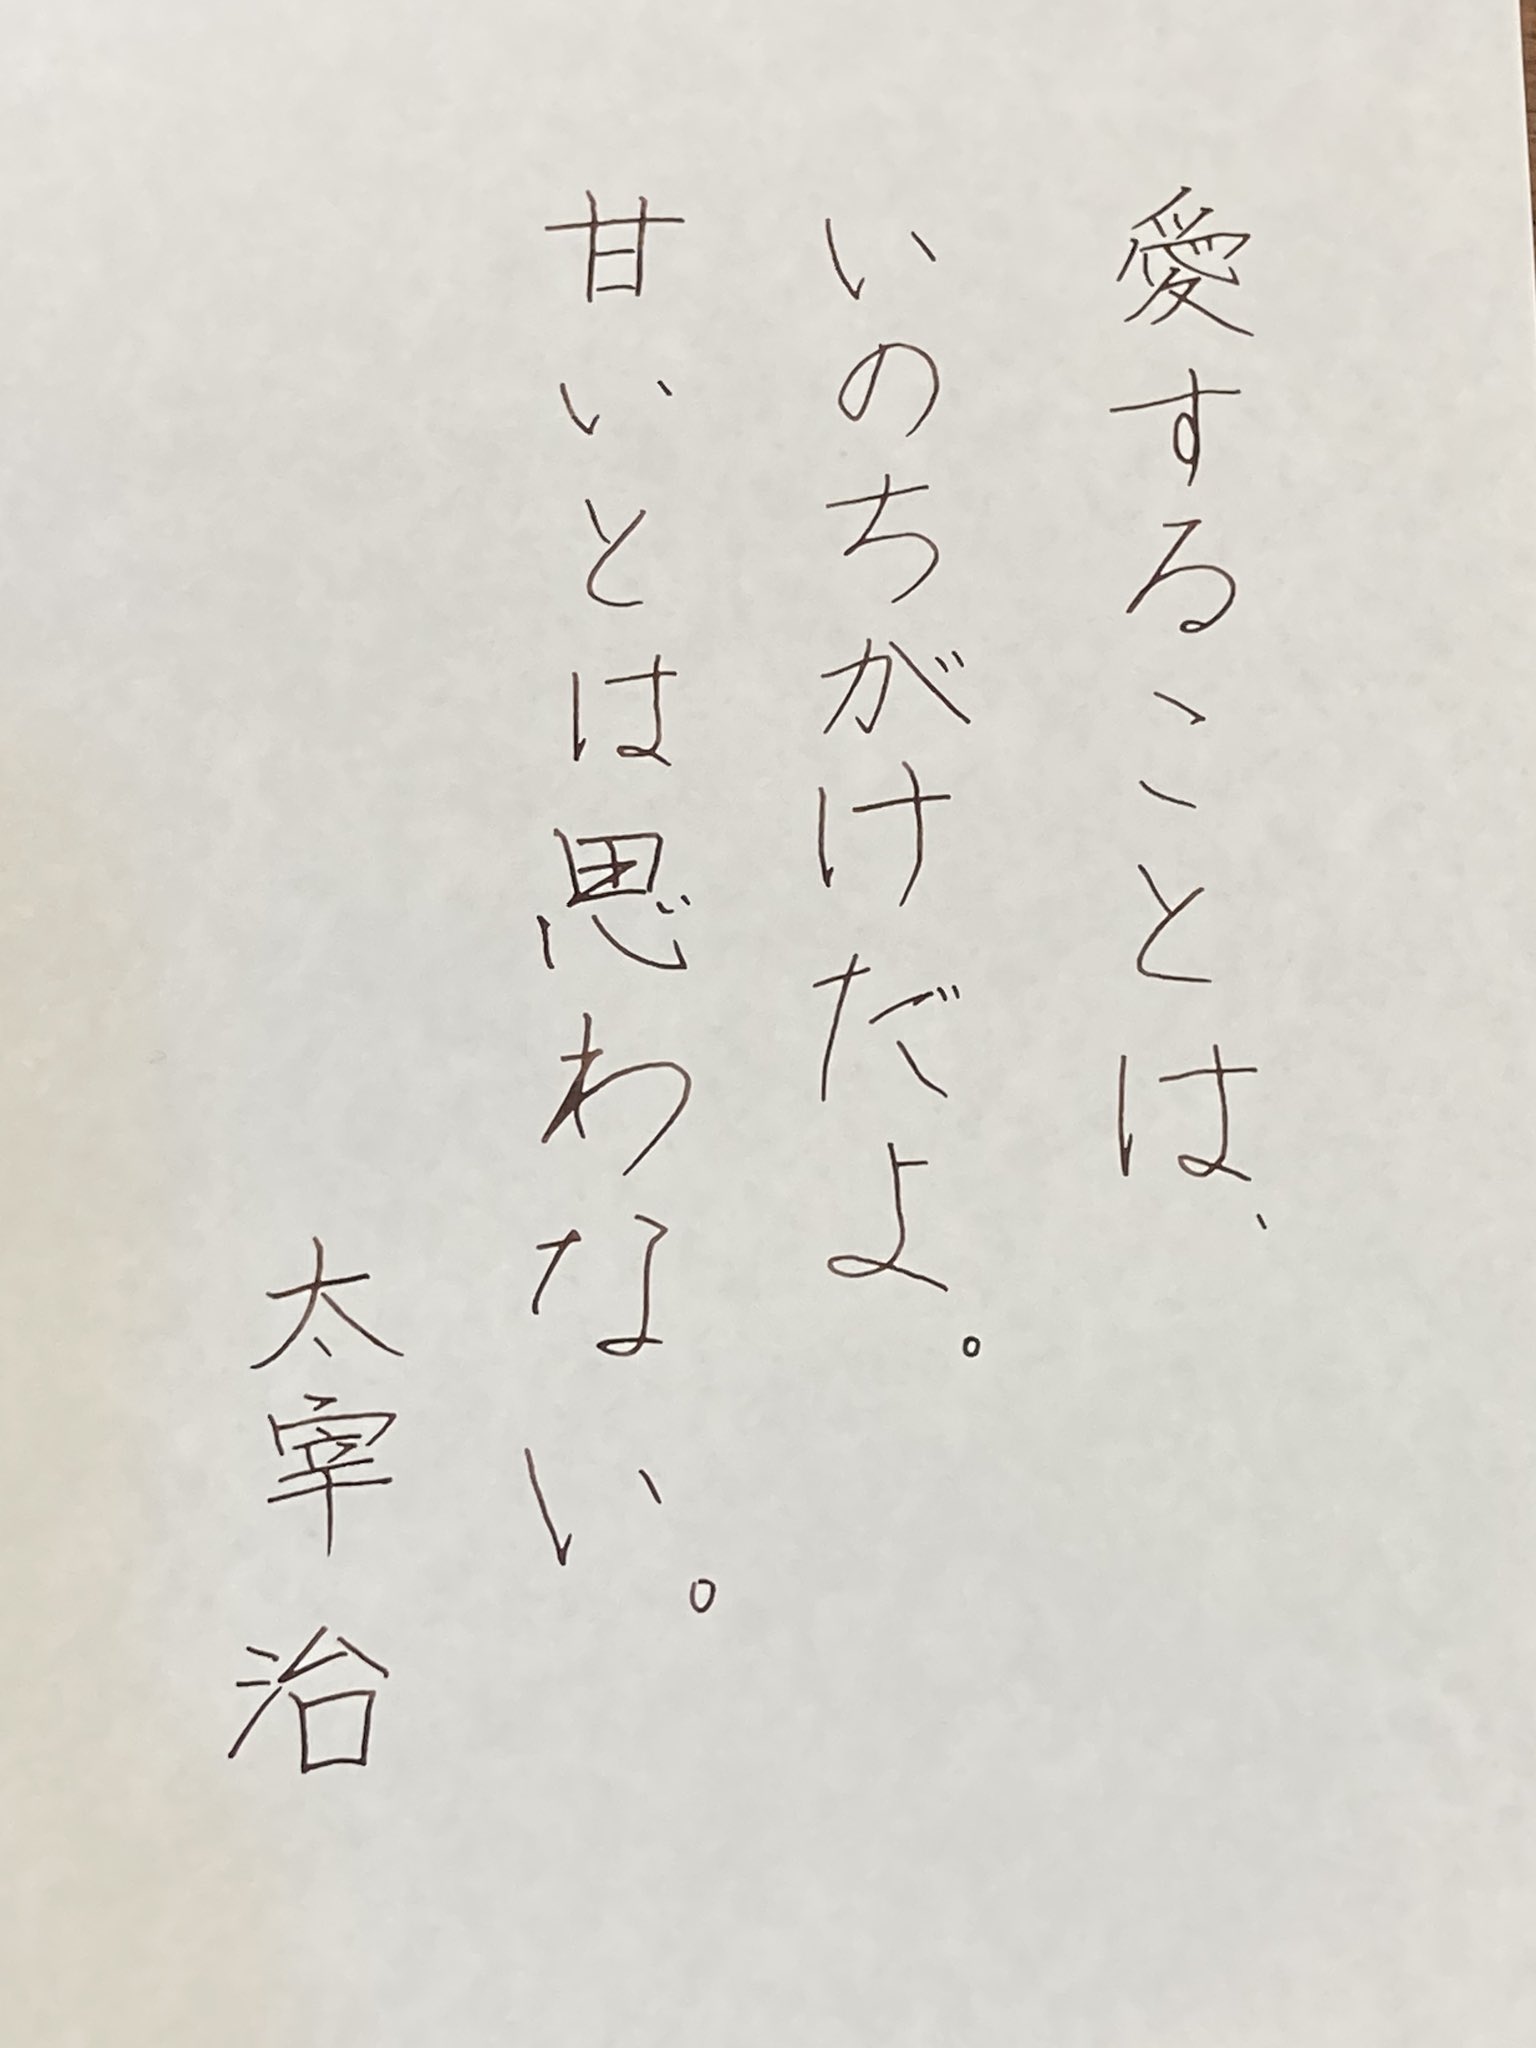 愛することは、
いのちがけだよ。
甘いとは思わない。
太宰治